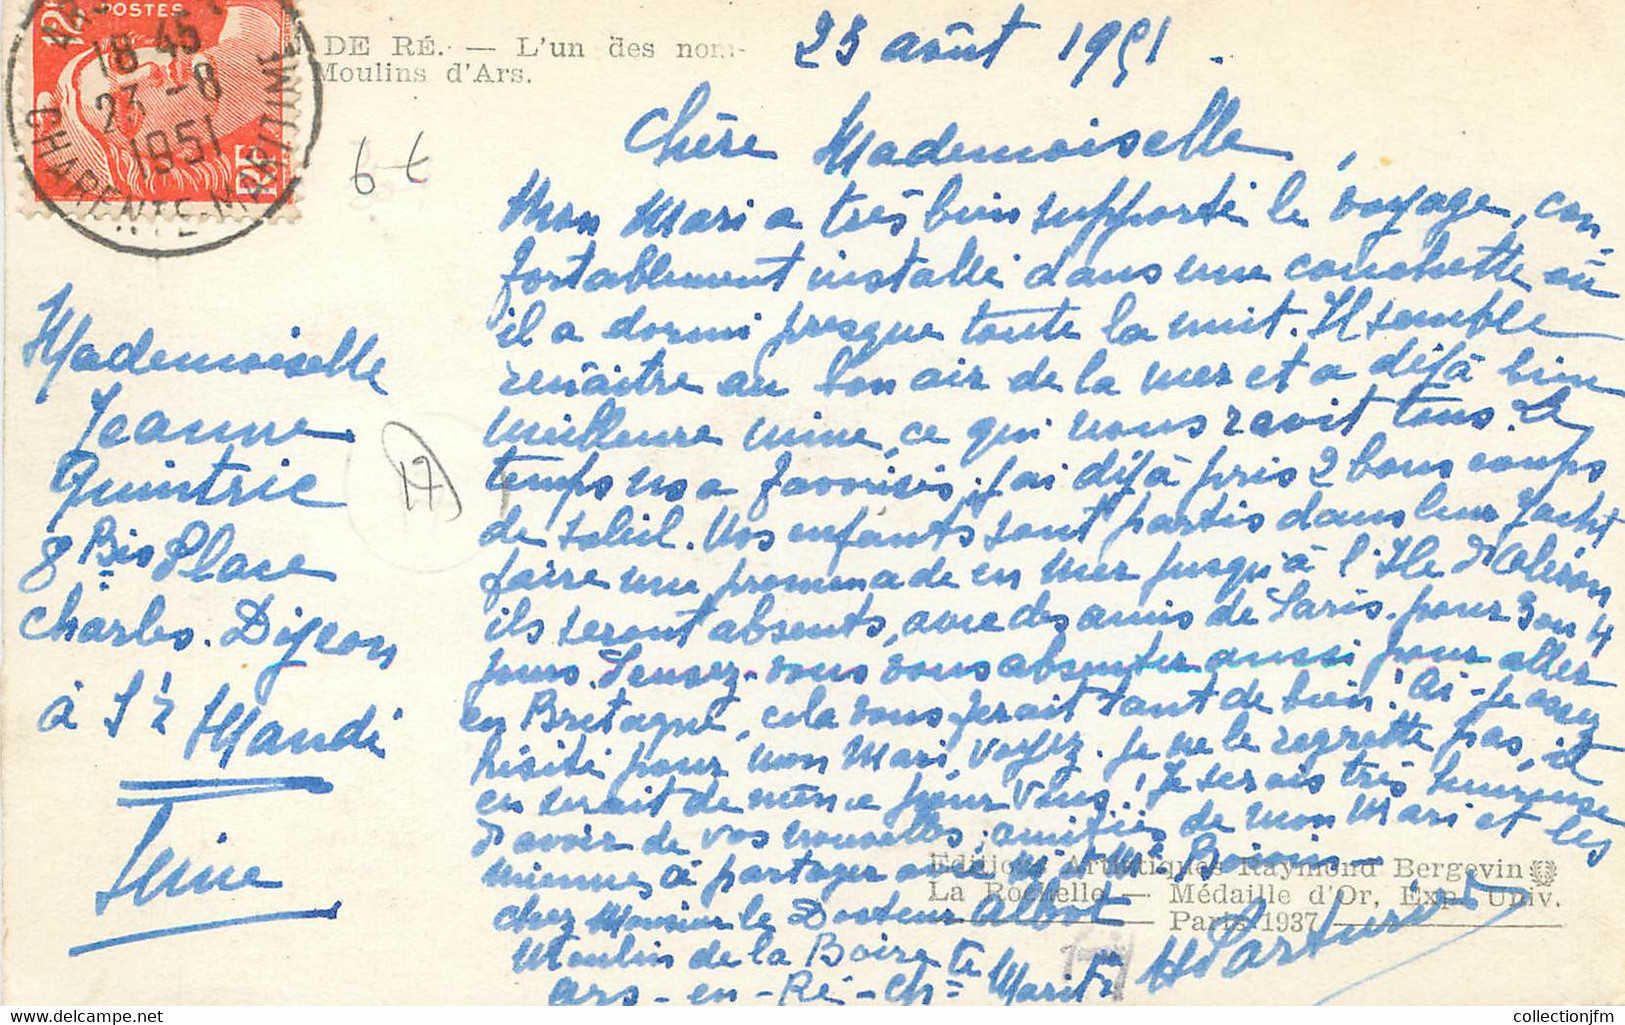 POSTES
12F
RF
18 45
23 - 8
1951
CHARENTE-MARITIME
DE RÉ. — L'un des nom-
Moulins d'Ars.
6 t
17
23 août 1951.
Chère Mademoiselle,
Mon Mari a très bien supporté le voyage, con-
fortablement installé dans une couchette où
il a dormi presque toute la nuit. Il semble
renaître au bon air de la mer et a déjà bien
meilleure mine, ce qui nous ravit tous. Le
temps ns a favorisés, j'ai déjà pris 2 bons coups
de soleil. Nos enfants sont partis dans leur Yacht
faire une promenade en mer jusqu'à l'Ile d'Oléron
ils seront absents, avec des amis de Paris, pour 3 ou 4
jours. Pensez-vous vous absenter aussi pour aller
en Bretagne, cela vous ferait tant de bien! Ai-je assez
hésité pour mon Mari, voyez. je ne le regrette pas, il
en serait de même pour Vous! Je serais très heureuse
d'avoir de vos nouvelles; amitiés de mon Mari et les
miennes à partager avec Mr et Me
chez Monsieur le Docteur Albot
Moulin de la Boire
Ars-en-Ré - Ch=te Maritime
Mademoiselle
Jeanne
Quintric
8 Bis Place
Charles. Digeon
à St Mandé
Seine
Editions Artistiques Raymond Bergevin
La Rochelle — Médaille d'Or, Exp. Univ.
Paris 1937
collectionjfm